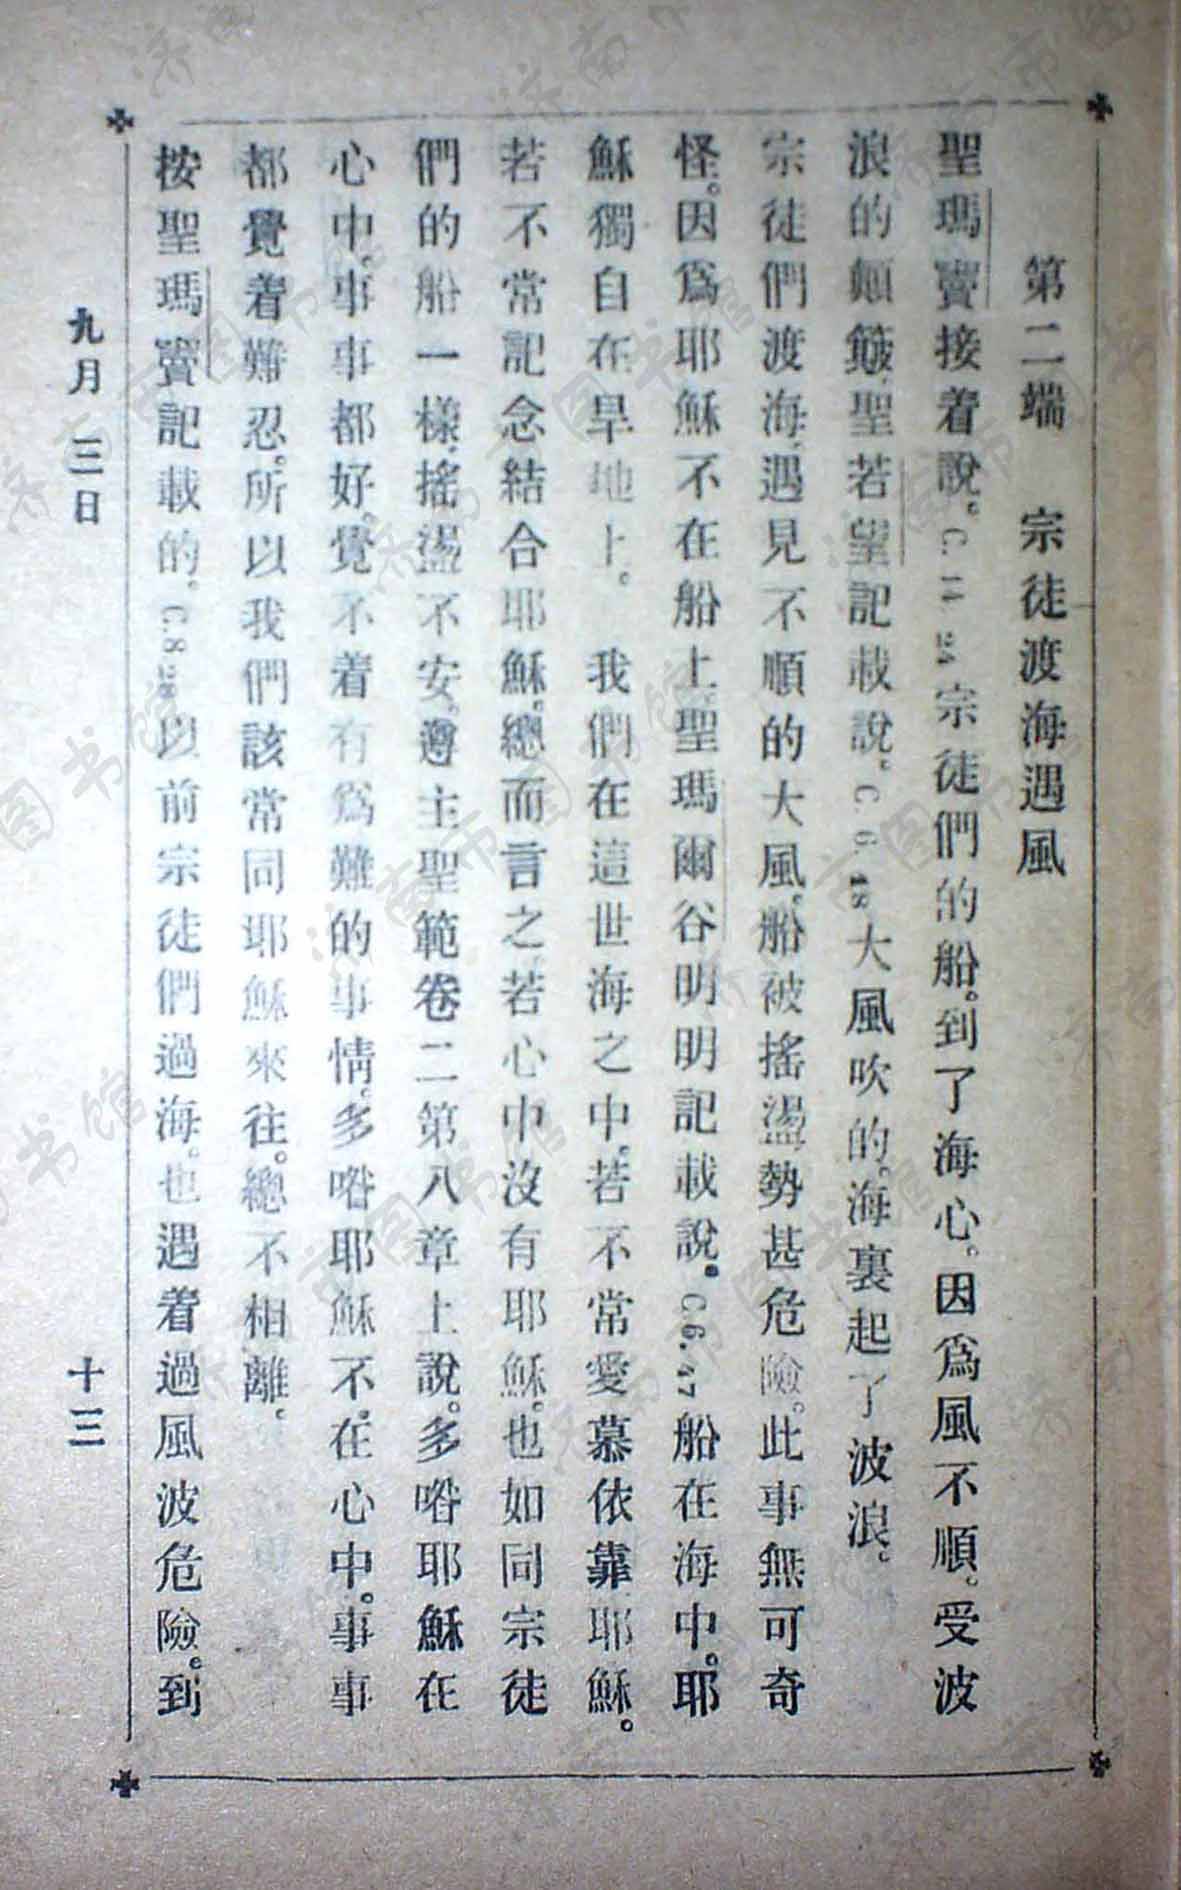 第二端　宗徒渡海遇風
聖瑪竇接着說。C. 14 24宗徒們的船。到了海心。因爲風不順。受波
浪的顛簸。聖若望記載說。C 6. 18大風吹的。海裏起了波浪。
宗徒們渡海。遇見不順的大風。船被搖盪。勢甚危險。此事無可奇
怪。因爲耶穌不在船上。聖瑪爾谷明明記載說。C. 6. 47船在海中。耶
穌獨自在旱地上。　我們在這世海之中。若不常愛慕依靠耶穌。
若不常記念結合耶穌。總而言之。若心中沒有耶穌。也如同宗徒
們的船一樣。搖盪不安。遵主聖範卷二第八章上說。多喒耶穌在
心中。事事都好。覺不着有爲難的事情。多喒耶穌不。在心中。事事
都覺着難忍。所以我們該常同耶穌來往。總不相離。
按聖瑪竇記載的。C. 8 28以前宗徒們過海。也遇着過風波危險。到
九月三日
十三
濟南市图书馆